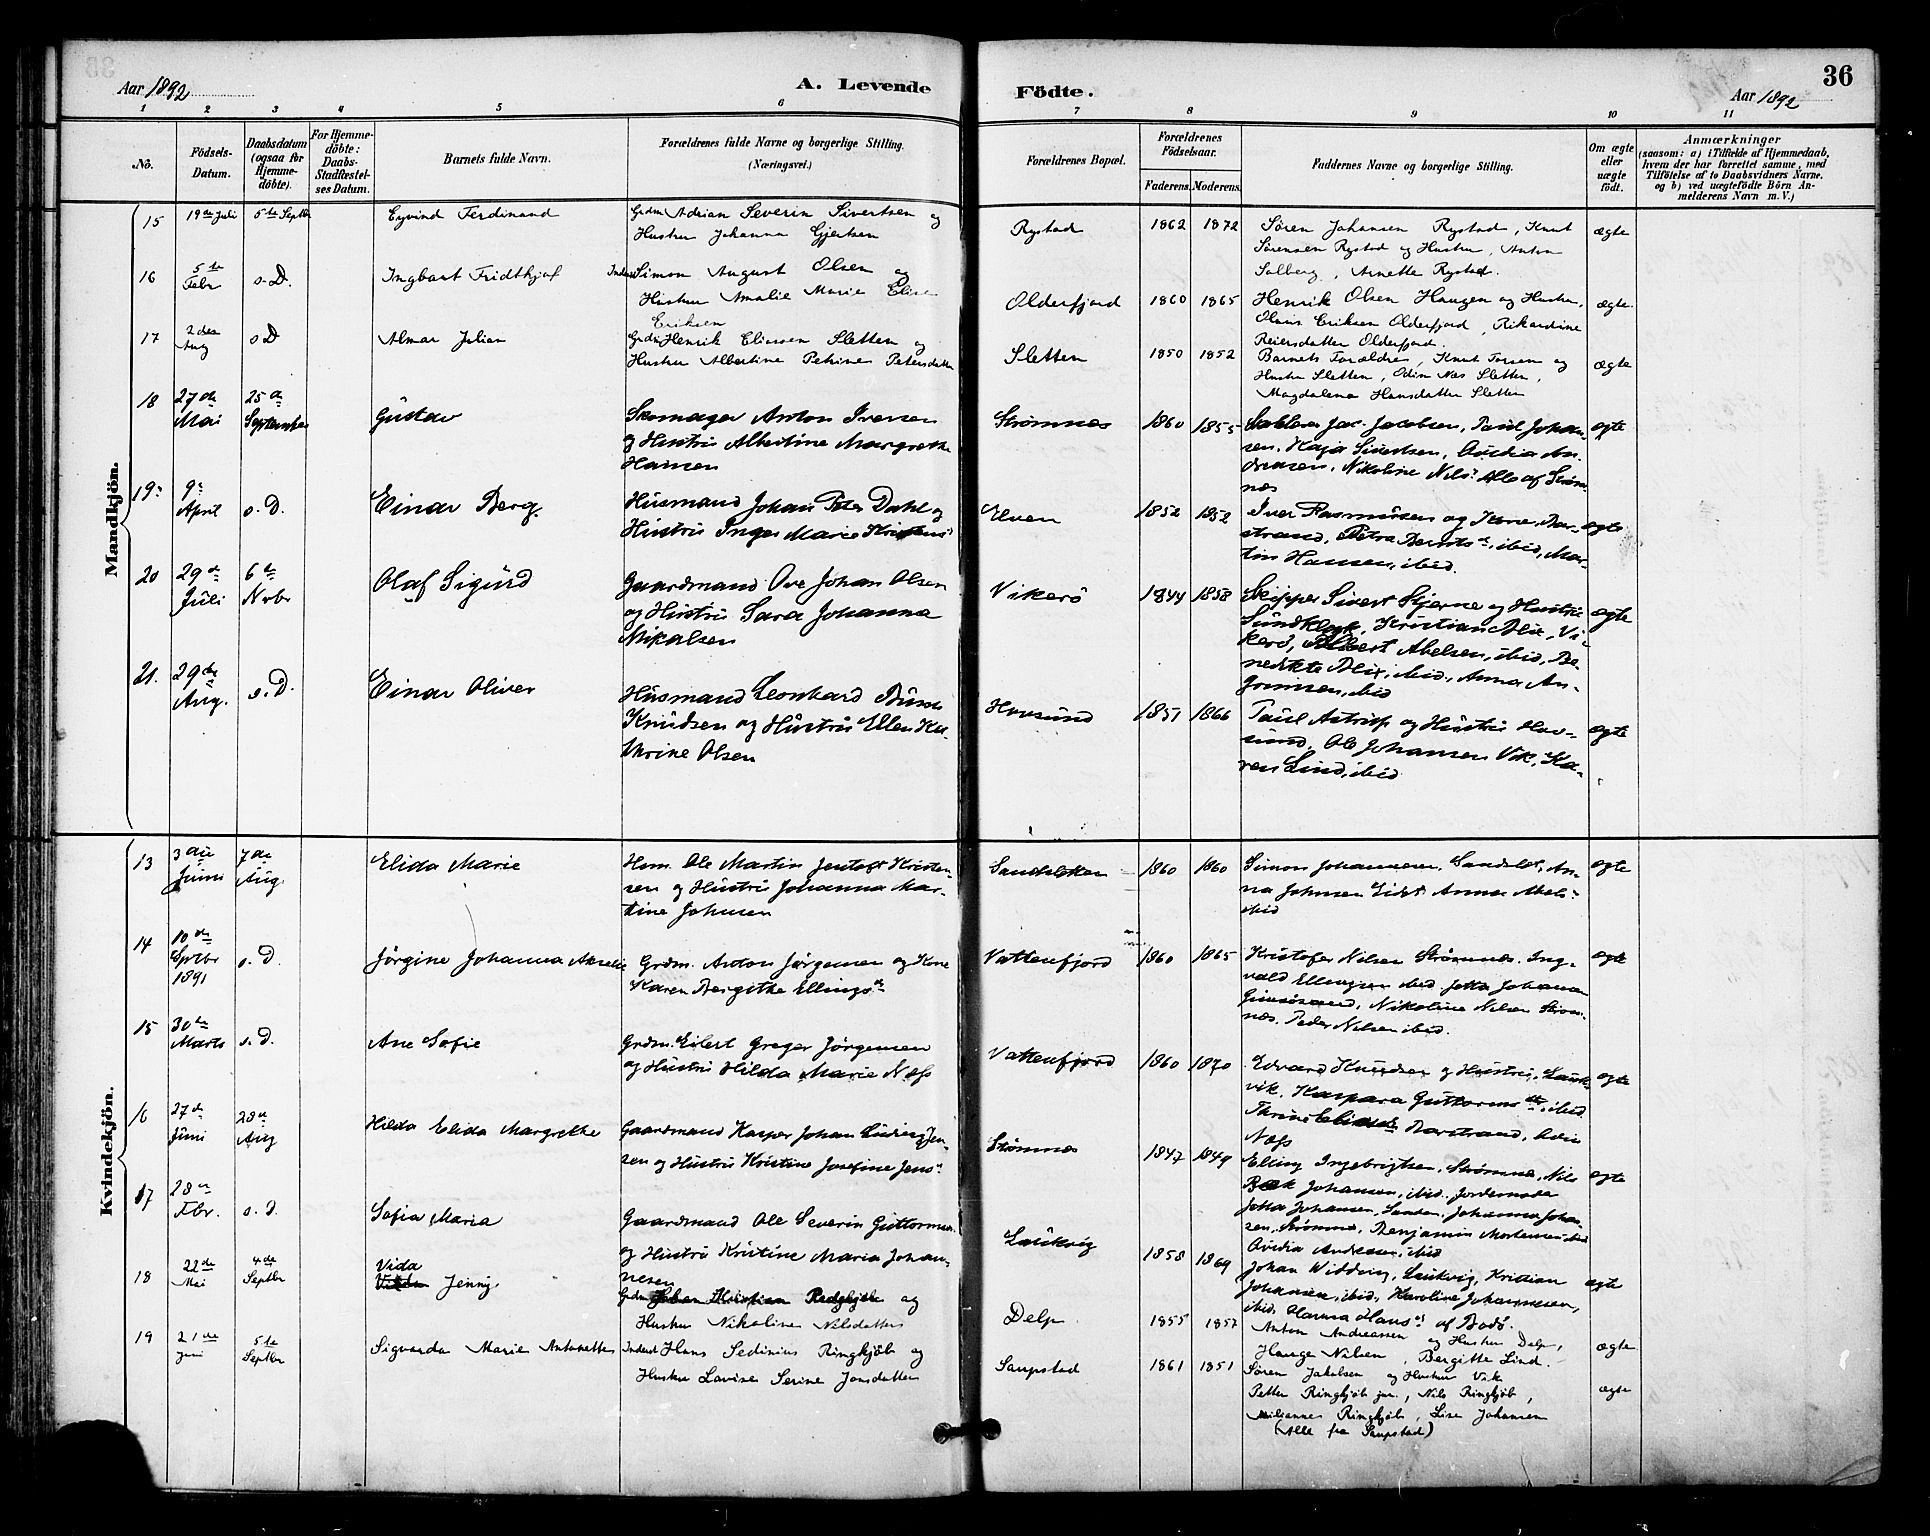 36
Aar 1892
A. Levende Födte.
Aar 1892
1 2 3 4 5 6 7 8 9 10 11
No.
Födsels-Datum.
Daabsdatum (ogsaa for Hjemme-döbte).
For Hjemme-döbte: Daabs-Stadfæstel-ses Datum.
Barnets fulde Navn.
Forældrenes fulde Navne og borgerlige Stilling.
(Næringsvei.)
Forældrenes Bopæl.
Forældrenes Födselsaar.
Faderens. Moderens.
Faddernes Navne og borgerlige Stilling.
Om ægte eller uægte födt.
Anmærkninger
(saasom: a) i Tilfælde af Hjemmedaab,
hvem der har forrettet samme, med
Tilföielse af to Daabsvidners Navne.
og b) ved uægtefödte Börn An-
melderens Navn m. V.)
Mandkjön.
15 19de Juli 5te Septbr Eyvind Ferdinand
Grdm Adrian Severin Sivertsen og
Hustru Johanna Gjertsen
Rystad 1862 1872
Sören Johansen Rystad, Knut
Sörensen Rystad og Hustru, Anton
Solberg, Arnette Rystad.
ægte
16 5te Febr s.D. Ingbart Fridtkjof
Inderst Simon August Olsen og
Hustru Amalie Marie Elise
Eriksen
Olderfjord 1860 1865
Henrik Olsen Haugen og Hustru,
Olavis Eriksen Olderfjord, Rikardine
Reiersdatter Olderfjord.
ægte.
17 2den Aug s.D Almar Julian
Grdm Henrik Eliassen Sletten og
Hustru Albertine Petrine Petersdatter
Sletten 1850 1852
Barnets Forældre, Knut Torsen og
Hustru Sletten, Odin Næs Sletten,
Magdalena Hansdatter Sletten
ægte
18 27de Mai 25de September Gustav
Skomager Anton Iversen
og Hustru Albertine Margrethe
Hansen
Strømnes 1860 1855
Jac. Jacobsen, Paul Johan-
sen, Kaja Sivertsen, Ovidia An-
dreasen, Nikoline Nils. Alle af Strøm-
nes
ægte
19. 9. April s. D. Einar Berg.
Husmand Johan Peter Dahl og
Hustru Inger Marie Kristens.
Elven 1852 1852
Iver Rasmussen og Kone, Bar-
strand, Petra Bernts d, ibid, Mar-
tin Hansen, ibid.
ægte
20 29de Juli 6te Nvbr Olaf Sigurd
Gaardmand Ove Johan Olsen
og Hustru Sara Johanna
Mikalsen
Vikerö 1844 1858
Skipper Sivert Stjerne og Hustru
Sundklak, Kristian Blix, Vi-
kerö, Albert Abelsen, ibid, Be-
nedikte Blix, ibid., Anna An-
ibid
ægte
21. 29de Aug. s. D. Einar Oliver
Husmand Leonhard
Knudsen og Hustru Ellen Ka-
thrine Olsen
Hovsund 1851 1866
Paul Astrup og Hustru Hov-
sund, Ole Johansen Vik, Ka-
ren Lind, ibid
ægte
Kvindekjön.
13 3die Juni 7de Aug. Elida Marie
Hsm. Ole Martin Jentoft Kristen-
sen og Hustru Johanna Mar-
tine Johnsen
1860 1860
Simon Johannesen, An-
na Johnsen Eidet Anna
ibid
ægte
14 10de Sptbr 1891 s. D. Jørgine Johanna
Grdm. Anton Jørgensen og Kone
Karen Bergithe Ellings d
Vattenfjord 1860 1865
Kristofer Nilsen Strømnes. Ing-
vald Ellingsen ibid Jetta Johansen
Gimsösand, Nikoline Nilsen Strøm-
nes. Peder Nilsen ibid.
ægte
15 30te Marts s. D. Ane Sofie
Grdm. Eilert Greger Jörgensen
og Hustru Hilda Marie Næss
Vattenfjord 1860 1870
Edvard Knudsen og Hustru, Lauk-
vik, Kaspara Guttorms d, ibid
Thrine Elias d Barstrand,
Næss
ægte
16 27de Juni 28de Aug Hilda Elida Margrethe
Gaardmand Kasper Johan Ludvig Jen-
sen og Hustru Kristine Josefine Jens d
Strømnes 1847 1849
Elling Ingebrigtsen, Strømnes, Nils
Bæk Johansen, ibid. Jordemoder
Jetta Johansen, Sanden, Johanna Johan-
sen, Strømnes, Benjamin Mortensen ibid
Ovidia Andersen, ibid
ægte
17 28de Fbr. s. D. Sofia Maria
Gaardmand Ole Severin Guttormsen
og Hustru Kristine Maria Johan-
nesen
Laukvig 1858 1869
Johan Widding, Laukvig, Kristian
Johansen, ibid, Karoline Johannesen,
ibid, Hanna Hans d af Bodö.
ægte
18 22de Mai 4de Septbr Vida Jenny
Grdm Johan Kristian Rødgkjær og
Hustru Nikoline Nilsdatter
Delp 1855 1857
Anton Andreassen og Hustru Delp,
Hauge Nilsen, Bergitte Lind.
ægte
19 21de Juni 5te Septbr Sigvarda Marie Antonette
Inderst Hans Sedinius Ringkjöb og
Hustru Lovise Serine Jonsdatter
Saupstad 1861 1851
Sören Jakobsen og Hustru Vik
Petter Ringkjöb jun., Nils Ringkjöb,
Ringkjöb, Lise Johansen
(Alle fra Saupstad)
ægte